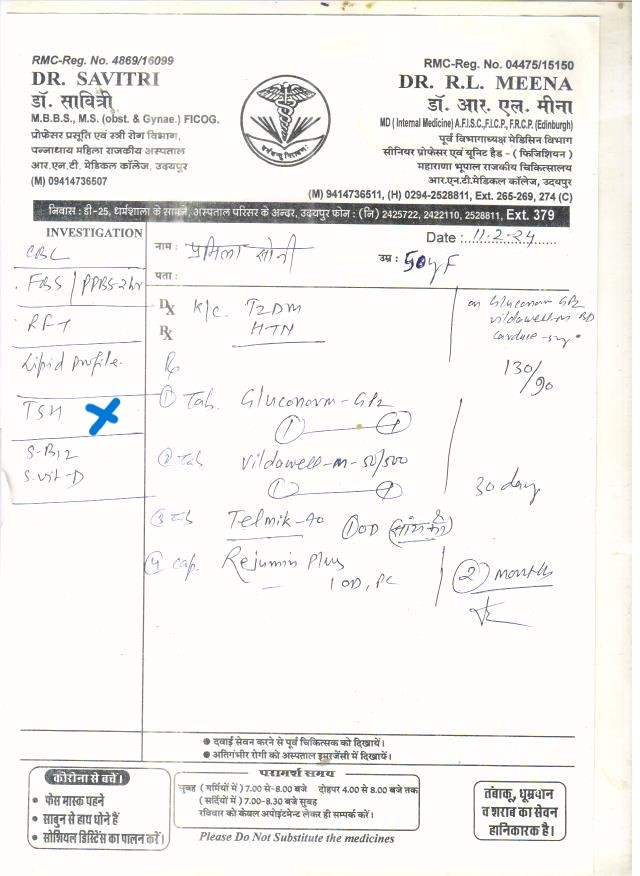 RMC-Reg. No. 4869/16099
DR. SAVITRI
डॉ. सावित्री
M.B.B.S., M.S. (obst. & Gynae.) FICOG.
प्रोफेसर प्रसूति एवं स्त्री रोग विभाग,
पन्नाधाय महिला राजकीय अस्पताल
आर.एन.टी. मेडिकल कॉलेज, उदयपुर
(M) 09414736507
RMC-Reg. No. 04475/15150
DR. R.L. MEENA
डॉ. आर. एल. मीना
MD ( Internal Medicine) A.F.I.S.C.,F.I.C.P., F.R.C.P. (Edinburgh)
पूर्व विभागाध्यक्ष मेडिसिन विभाग
सीनियर प्रोफेसर एवं यूनिट हैड - (फिजिशियन)
महाराणा भूपाल राजकीय चिकित्सालय
आर.एन.टी.मेडिकल कॉलेज, उदयपुर
(M) 9414736511, (H) 0294-2528811, Ext. 265-269, 274 (C)
निवास : डी-25, धर्मशाला के सामने, अस्पताल परिसर के अन्दर, उदयपुर फोन : (नि) 2425722, 2422110, 2528811, Ext. 379
INVESTIGATION
CBC
FBS / PPBS-2hr
RFT
Lipid profile
TSH
S-B12
S.vit-D
Date : 11.2.24
नाम : प्रमिला सोनी
उम्र : 50y F
पता :
Dx K/c. T2DM
Rx HTN
on Gluconorm GP2
vildawell-m BD
130/90
Rp
① Tab. Gluconorm-GP2
① ①
② Tab Vildawell-m-50/500
① ①
30 day
③ Tab Telmik-40 ① OD
④ Cap. Rejumin Plus
1 OD, PC
② months
● दवाई सेवन करने से पूर्व चिकित्सक को दिखायें।
● अतिगंभीर रोगी को अस्पताल इमरजेंसी में दिखायें।
कोरोना से बचें।
• फेस मास्क पहने
• साबुन से हाथ धोने हैं
• सोशियल डिस्टेंस का पालन करें।
परामर्श समय
सुबह ( गर्मियों में ) 7.00 से-8.00 बजे दोहपर 4.00 से 8.00 बजे तक
( सर्दियों में ) 7.00-8.30 बजे सुबह
रविवार को केवल अपोइंटमेन्ट लेकर ही सम्पर्क करें।
Please Do Not Substitute the medicines
तंबाकू, धूम्रपान
व शराब का सेवन
हानिकारक है।